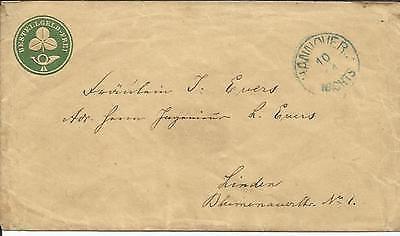 BESTELLGELD-FREI
HANNOVER
10
1
NACHTS
Fräulein J. Evers
Adr. Herrn Ingenieur L. Evers
Linden
Blumenauerstr. No. 1.